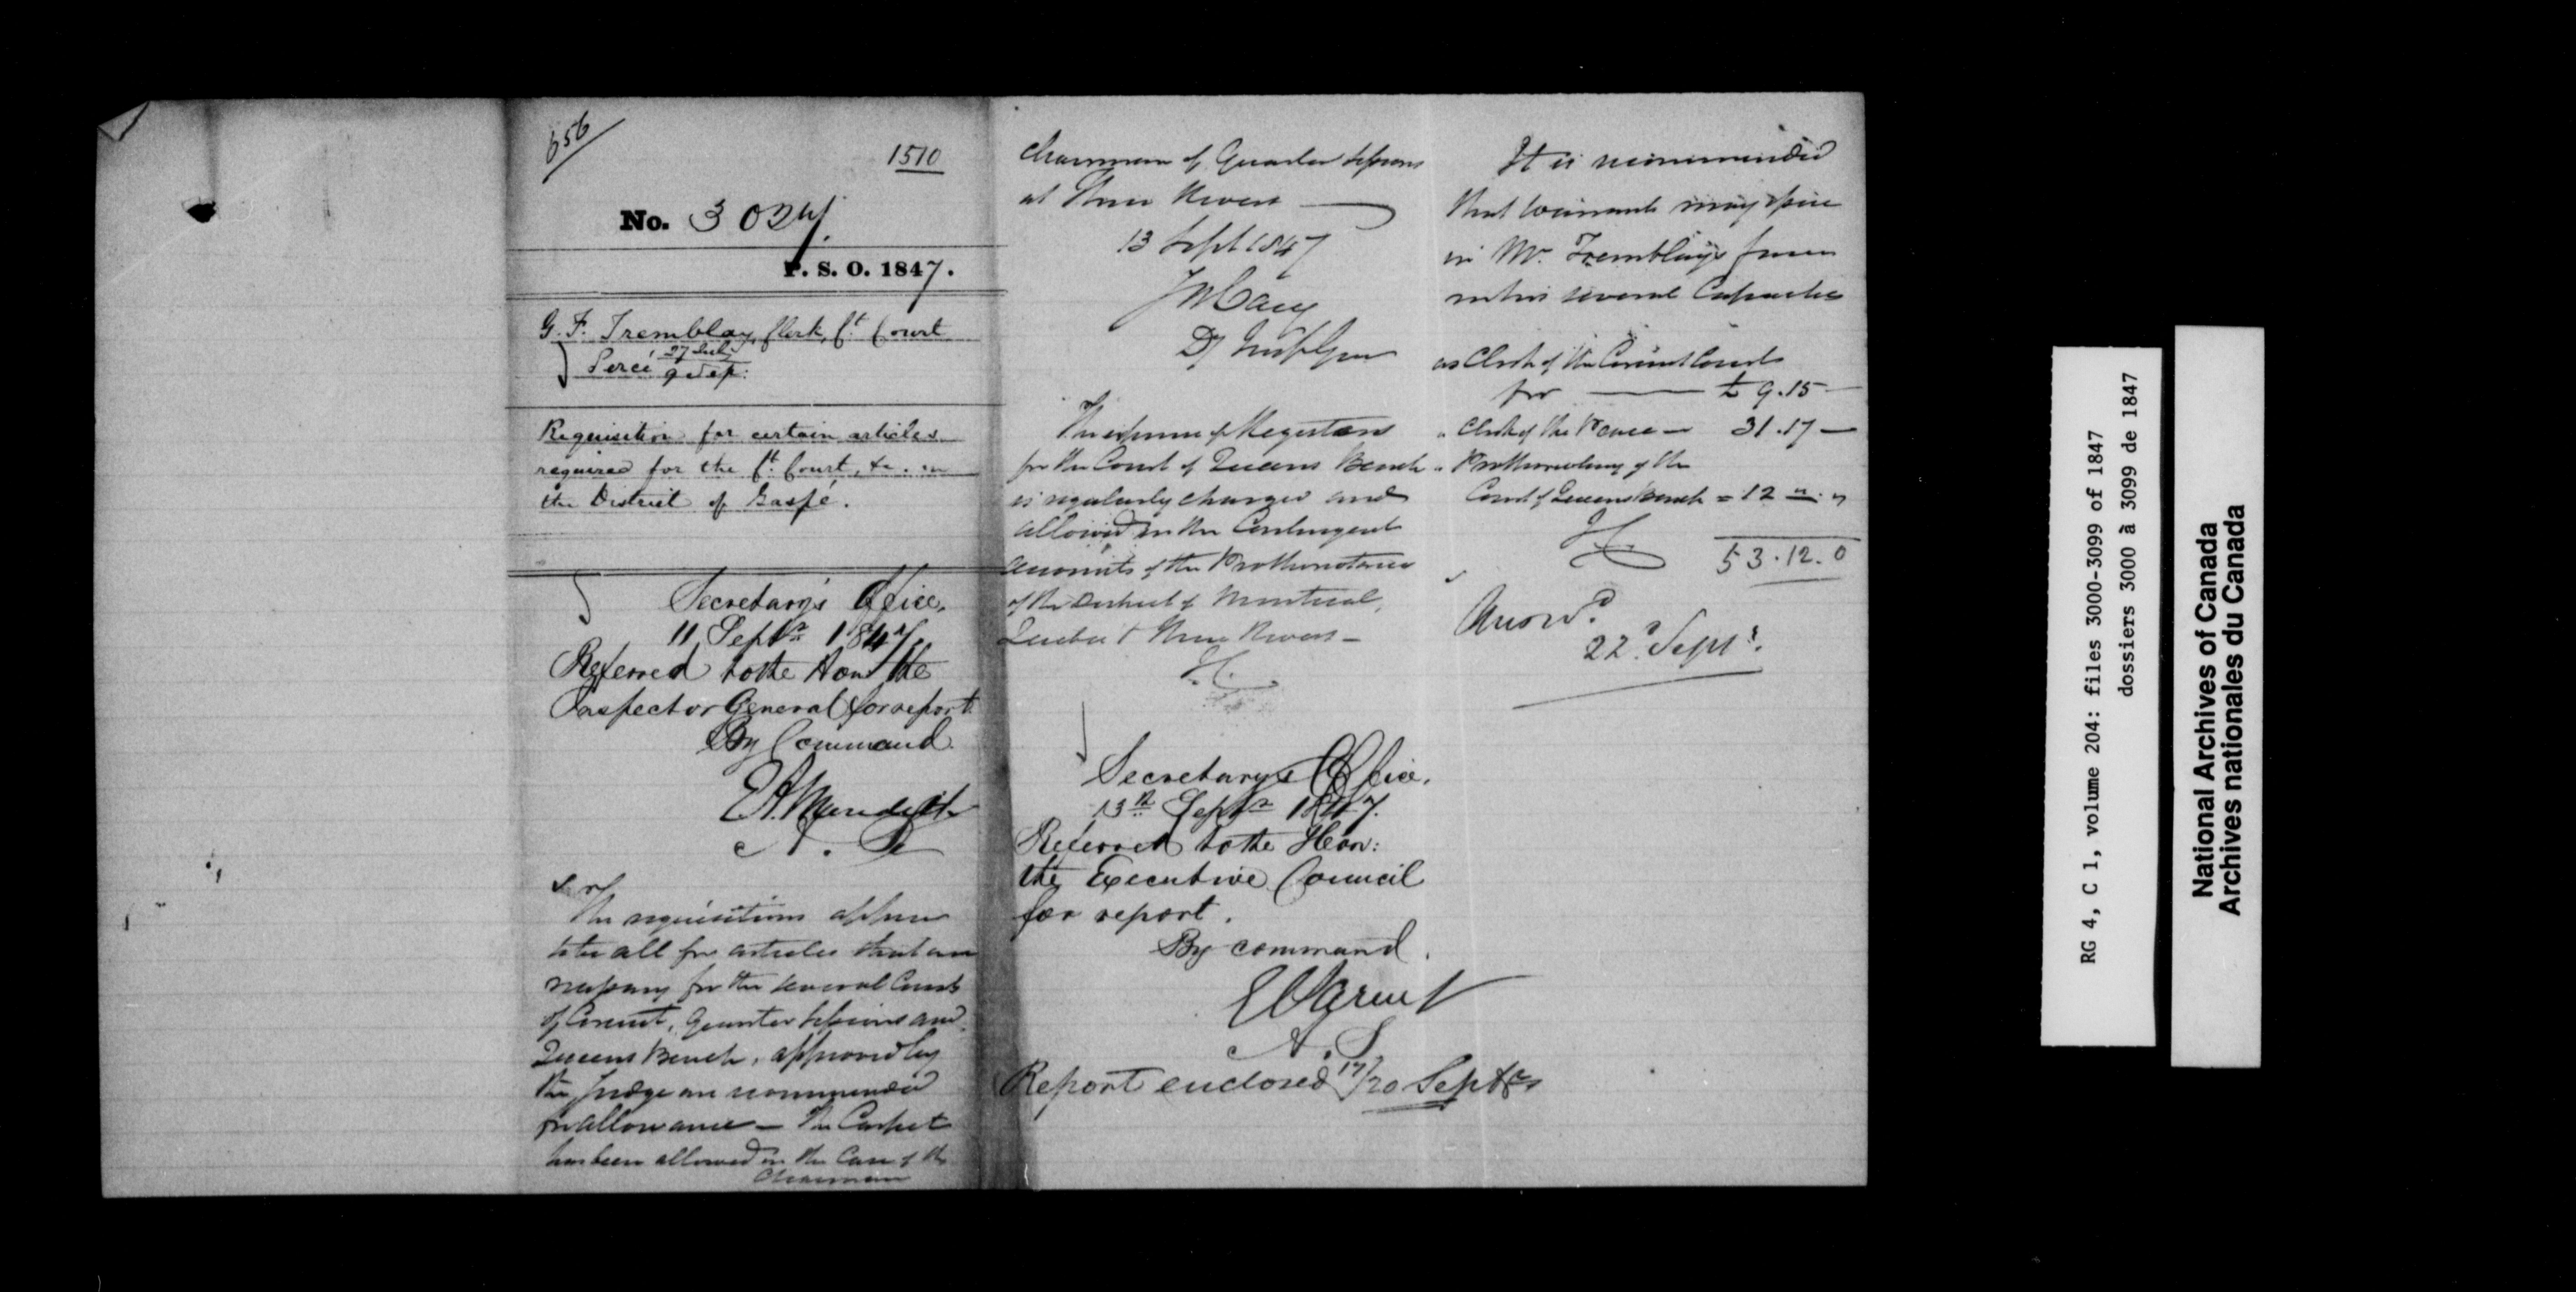 656
1510
No. 3024.
P. S. O. 1847.
G. F. Tremblay, Clerk, Ct. Court
Percé 27 July
9 Sep:
Requisition for certain articles
required for the Ct. Court, &c. in
the District of Gaspé.
Secretary's Office,
11 Septr. 1847.
Referred to the Hon the
Inspector General for report.
By Command
E A Meredith
A. S
The requisitions appear
to be all for articles that are
necessary for the several Courts
of Circuit, Quarter Sessions and
Queens Bench, approved by
the Judge are recommended
for allowance — The Carpet
has been allowed in the Case of the
Chairman
Chairman of Quarter Sessions
at Three Rivers —
13 Sept 1847
J W Cary
Dy Insp Gen
The expense of Registers
for the Court of Queens Bench
is regularly charged and
allowed in the Contingent
accounts of the Prothonotaries
of the District of Montreal,
Quebec & Three Rivers —
Secretary's Office,
13th Septr 1847.
Referred to the Hon:
the Executive Council
for report.
By command.
E Parent
A. S.
Report enclosed 17/20 Septr
It is recommended
that warrants may issue
in Mr. Tremblay's favor
in his several Capacities
as Clerk of the Circuit Court
for — £ 9.15 —
" Clerk of the Peace — 31.17 —
" Prothonotary of the
Court of Queens Bench = 12 " "
53.12.0
Answd.
22d Septr.
RG 4, C 1, volume 204: files 3000-3099 of 1847
dossiers 3000 à 3099 de 1847
National Archives of Canada
Archives nationales du Canada